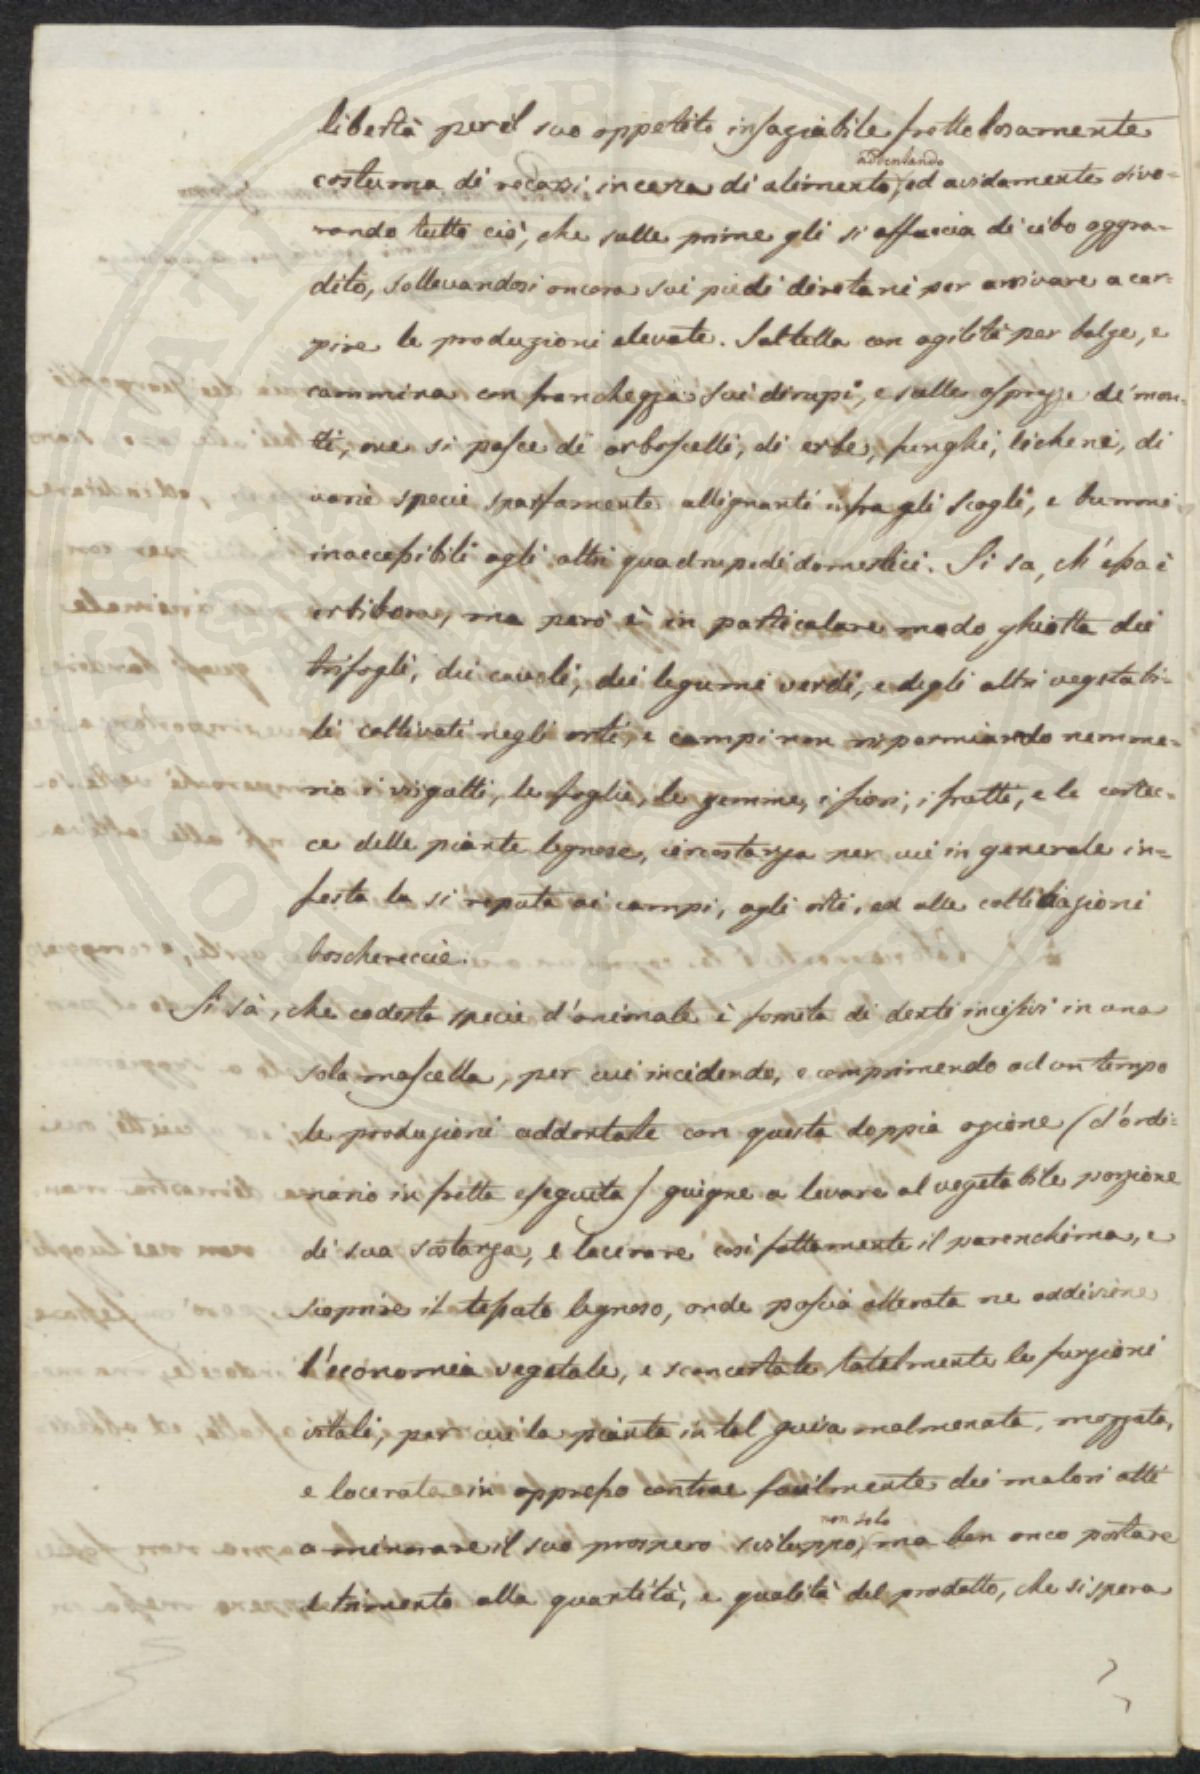 libertà per il suo appetito insaziabile frettolosamente
addentando
costuma di recarsi in cerca di alimento, ed avidamente divo-
rando tutto ciò, che sulle prime gli si affaccia di cibo aggra-
dito, sollevandosi ancora sui piedi diretani per arrivare a car-
pire le produzioni elevate. Saltella con agilità per balze, e
cammina con franchezza sui dirupi, e sulle asprezze de' mon-
ti, ove si pasce di arboscelli, di erbe, funghi, licheni, di
varie specie sparsamente allignanti infra gli scogli, e
inaccessibili agli altri quadrupedi domestici. Si sa, ch' essa è
erbibora, ma però è in particolare modo ghiotta dei
trifogli, dei cavoli, dei legumi verdi, e degli altri vegetabi-
li coltivati negli orti, e campi non risparmiando nemme-
no i virgulti, le foglie, le gemme, i fiori, i frutti, e le cortec-
ce delle piante legnose, circostanza per cui in generale in-
festa la si reputa ai campi, agli orti, ed alle coltivazioni
boschereccie.
Si sà, che codesta specie d'animale è fornita di denti incisivi in una
sola mascella, per cui incidendo, e comprimendo ad un tempo
le produzioni addentate con questa doppia azione (d'ordi-
nario in fretta eseguita) giugne a levare al vegetabile porzione
di sua sostanza, e lacerare così fattamente il parenchima, e
scoprire il tessuto legnoso, onde poscia alterata ne addiviene
l'economia vegetale, e sconcertate totalmente le funzioni
vitali, per cui la pianta in tal guisa malmenata, mozzata,
e lacerata in appresso contrae facilmente dei malori atti
non solo
a minorare il suo prospero sviluppo, ma ben anco portare
detrimento alla quantità, e qualità del prodotto, che si spera